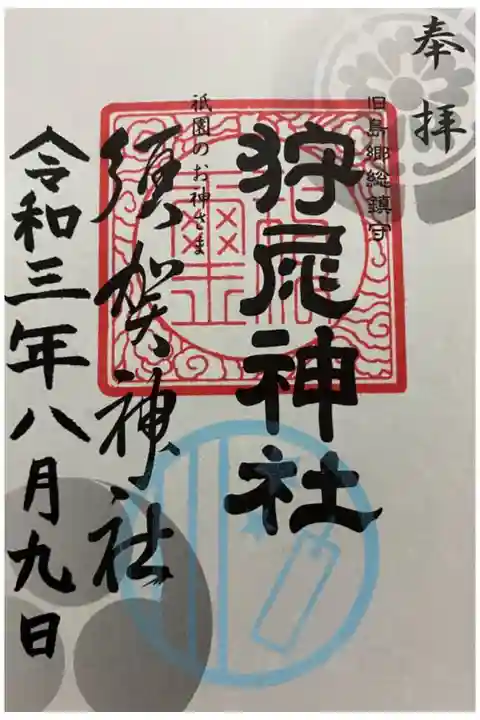 奉拝
旧島郷総鎮守
狩尾神社
祇園のお神さま
須賀神社
令和三年八月九日